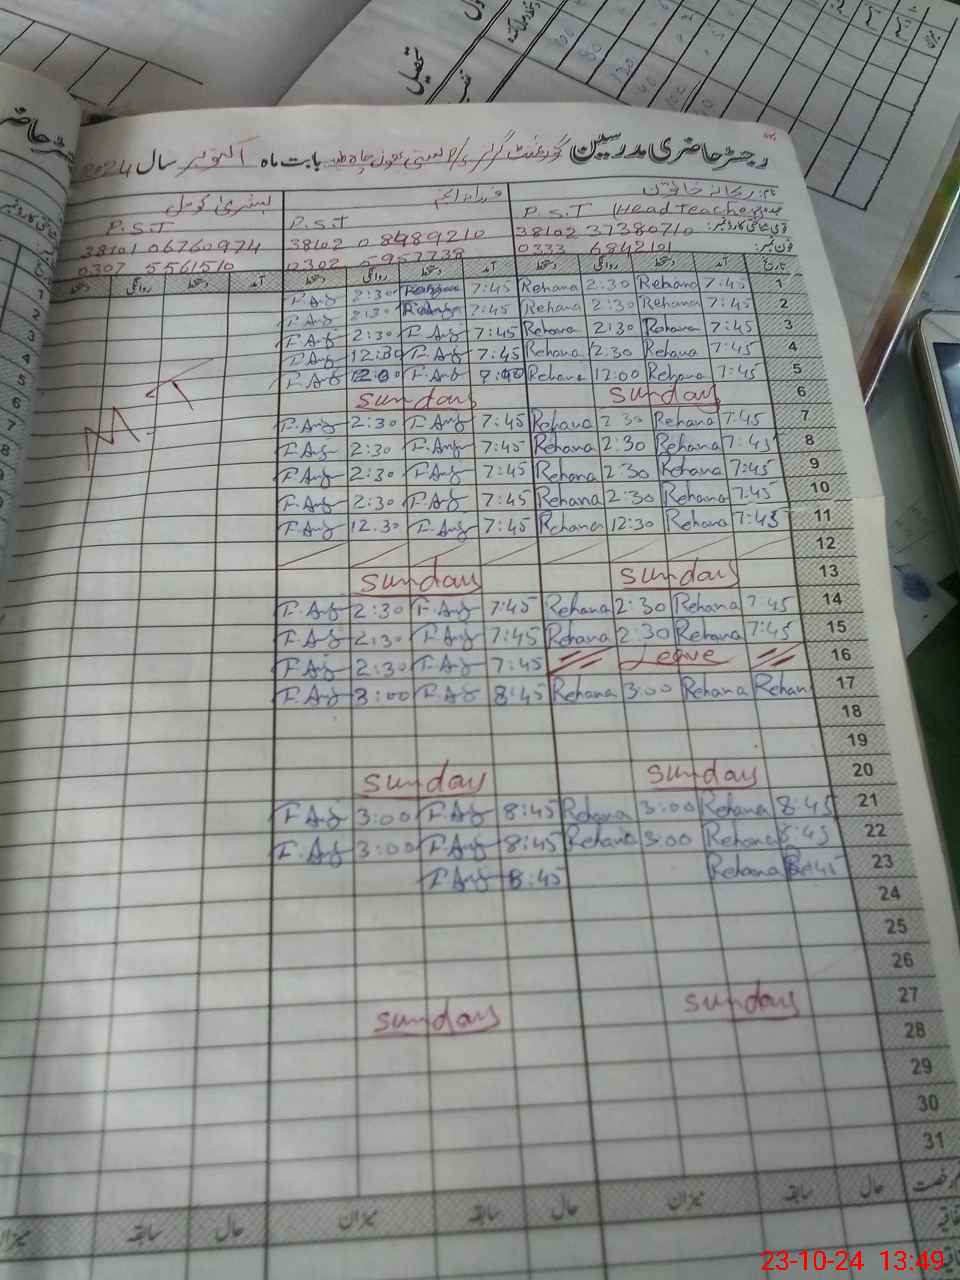 رجسٹر حاضری مدرسین گورنمنٹ گرلز بابت ماہ اکتوبر سال 2024
نام: ریحانہ خاتون
بشریٰ کومل
P.S.T (Head Teacher) P.S.T P.S.T
38102 37380710 38102 0 8489210 38101 0676097 4
فون نمبر: 0333 6842101 0302 5957739 0307 5561510
تاریخ آمد دستخط روانگی دستخط آمد دستخط روانگی دستخط آمد دستخط روانگی دستخط
F.Ang 2:30 7:45 Rehana 2:30 Rehana 7:45 1
F.Ang 2:30 7:45 Rehana 2:30 Rehana 7:45 2
F.Ang 2:30 F.Ang 7:45 Rehana 2:30 Rehana 7:45 3
F.Ang 12:30 F.Ang 7:45 Rehana 2:30 Rehana 7:45 4
F.Ang F.Ang Rehana 12:00 Rehana 7:45 5
Sunday Sunday 6
F.Ang 2:30 F.Ang 7:45 Rehana 2:30 Rehana 7:45 7
F.Ang 2:30 F.Ang 7:45 Rehana 2:30 Rehana 7:45 8
F.Ang 2:30 F.Ang 7:45 Rehana 2:30 Rehana 7:45 9
F.Ang 2:30 F.Ang 7:45 Rehana 2:30 Rehana 7:45 10
F.Ang 12:30 F.Ang 7:45 Rehana 12:30 Rehana 7:45 11
12
Sunday Sunday 13
F.Ang 2:30 F.Ang 7:45 Rehana 2:30 Rehana 7:45 14
F.Ang 2:30 F.Ang 7:45 Rehana 2:30 Rehana 7:45 15
F.Ang 2:30 F.Ang 7:45 Leave 16
F.Ang 3:00 F.Ang 8:45 Rehana 3:00 Rehana Rehan 17
18
19
Sunday Sunday 20
F.Ang 3:00 F.Ang 8:45 Rehana 3:00 Rehana 8:45 21
F.Ang 3:00 F.Ang 8:45 Rehana 3:00 Rehana 8:45 22
F.Ang 8:45 Rehana 8:45 23
24
25
26
Sunday Sunday 27
28
29
30
31
حال سابقہ میزان حال سابقہ میزان حال سابقہ میزان
23-10-24 13:49